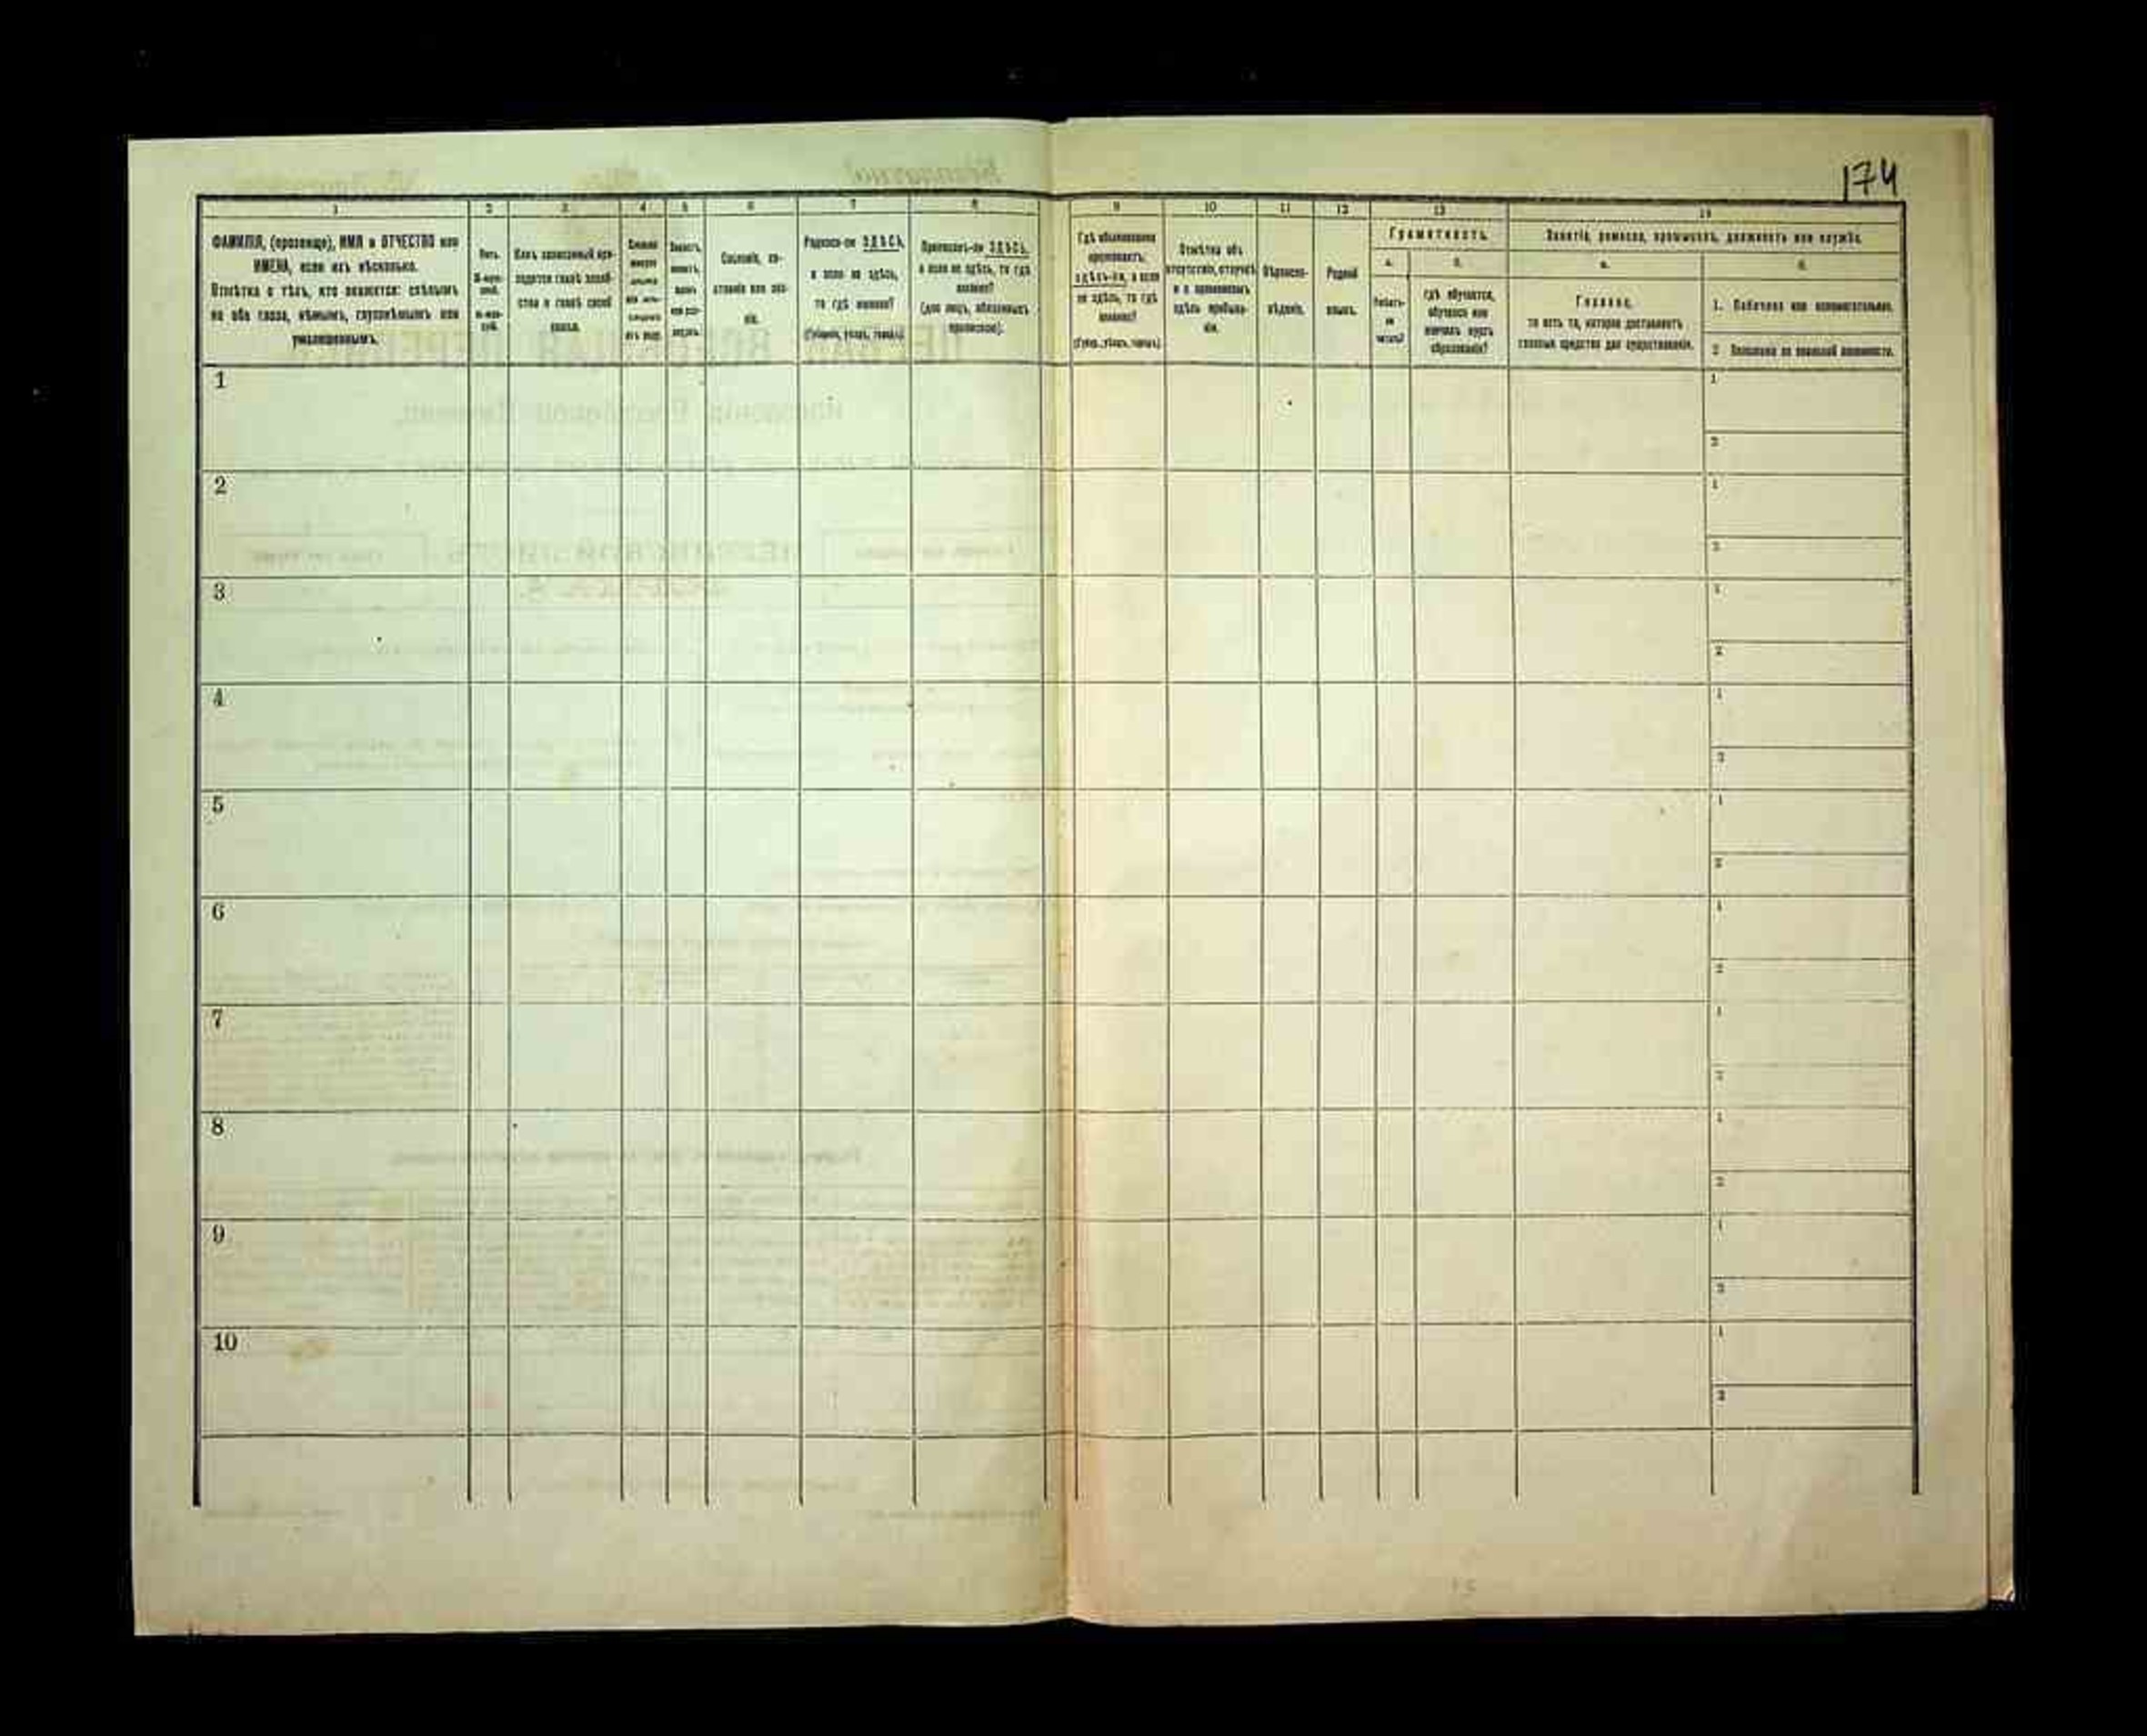 174
1
ФАМИЛІЯ, (прозвище), ИМЯ и ОТЧЕСТВО или
ИМЕНА, если ихъ нѣсколько.
Отмѣтка о тѣхъ, кто окажется: слѣпымъ
на оба глаза, нѣмымъ, глухонѣмымъ или
умалишеннымъ.
2
Полъ.
3
Какъ записанный при-
ходится главѣ хозяй-
ства и главѣ своей
семьи.
4
5
6
Сословіе, со-
стояніе или зва-
ніе.
7
Родился-ли ЗДѢСЬ,
а если не здѣсь,
то гдѣ именно?
(Губернія, уѣздъ, городъ).
8
Приписанъ-ли ЗДѢСЬ,
а если не здѣсь, то гдѣ
именно?
(для лицъ, обязанныхъ
припискою).
9
Гдѣ обыкновенно
проживаетъ:
здѣсь-ли, а если
не здѣсь, то гдѣ
именно?
(Губер., уѣздъ, городъ).
10
Отмѣтка объ
отсутствіи, отлучкѣ
и о временномъ
здѣсь пребыва-
ніи.
11
Вѣроиспо-
вѣданіе.
12
Родной
языкъ.
13
Грамотность.
а.
Умѣетъ-
ли
читать?
б.
гдѣ обучается,
обучался или
кончилъ курсъ
образованія?
14
Занятіе, ремесло, промыселъ, должность или служба.
а.
Главное,
то есть то, которое доставляетъ
главныя средства для существованія.
б.
1. Побочное или вспомогательное.
2. Положеніе по воинской повинности.
1
1
2
2
1
2
3
1
2
4
1
2
5
1
2
6
1
2
7
1
2
8
1
2
9
1
2
10
1
2